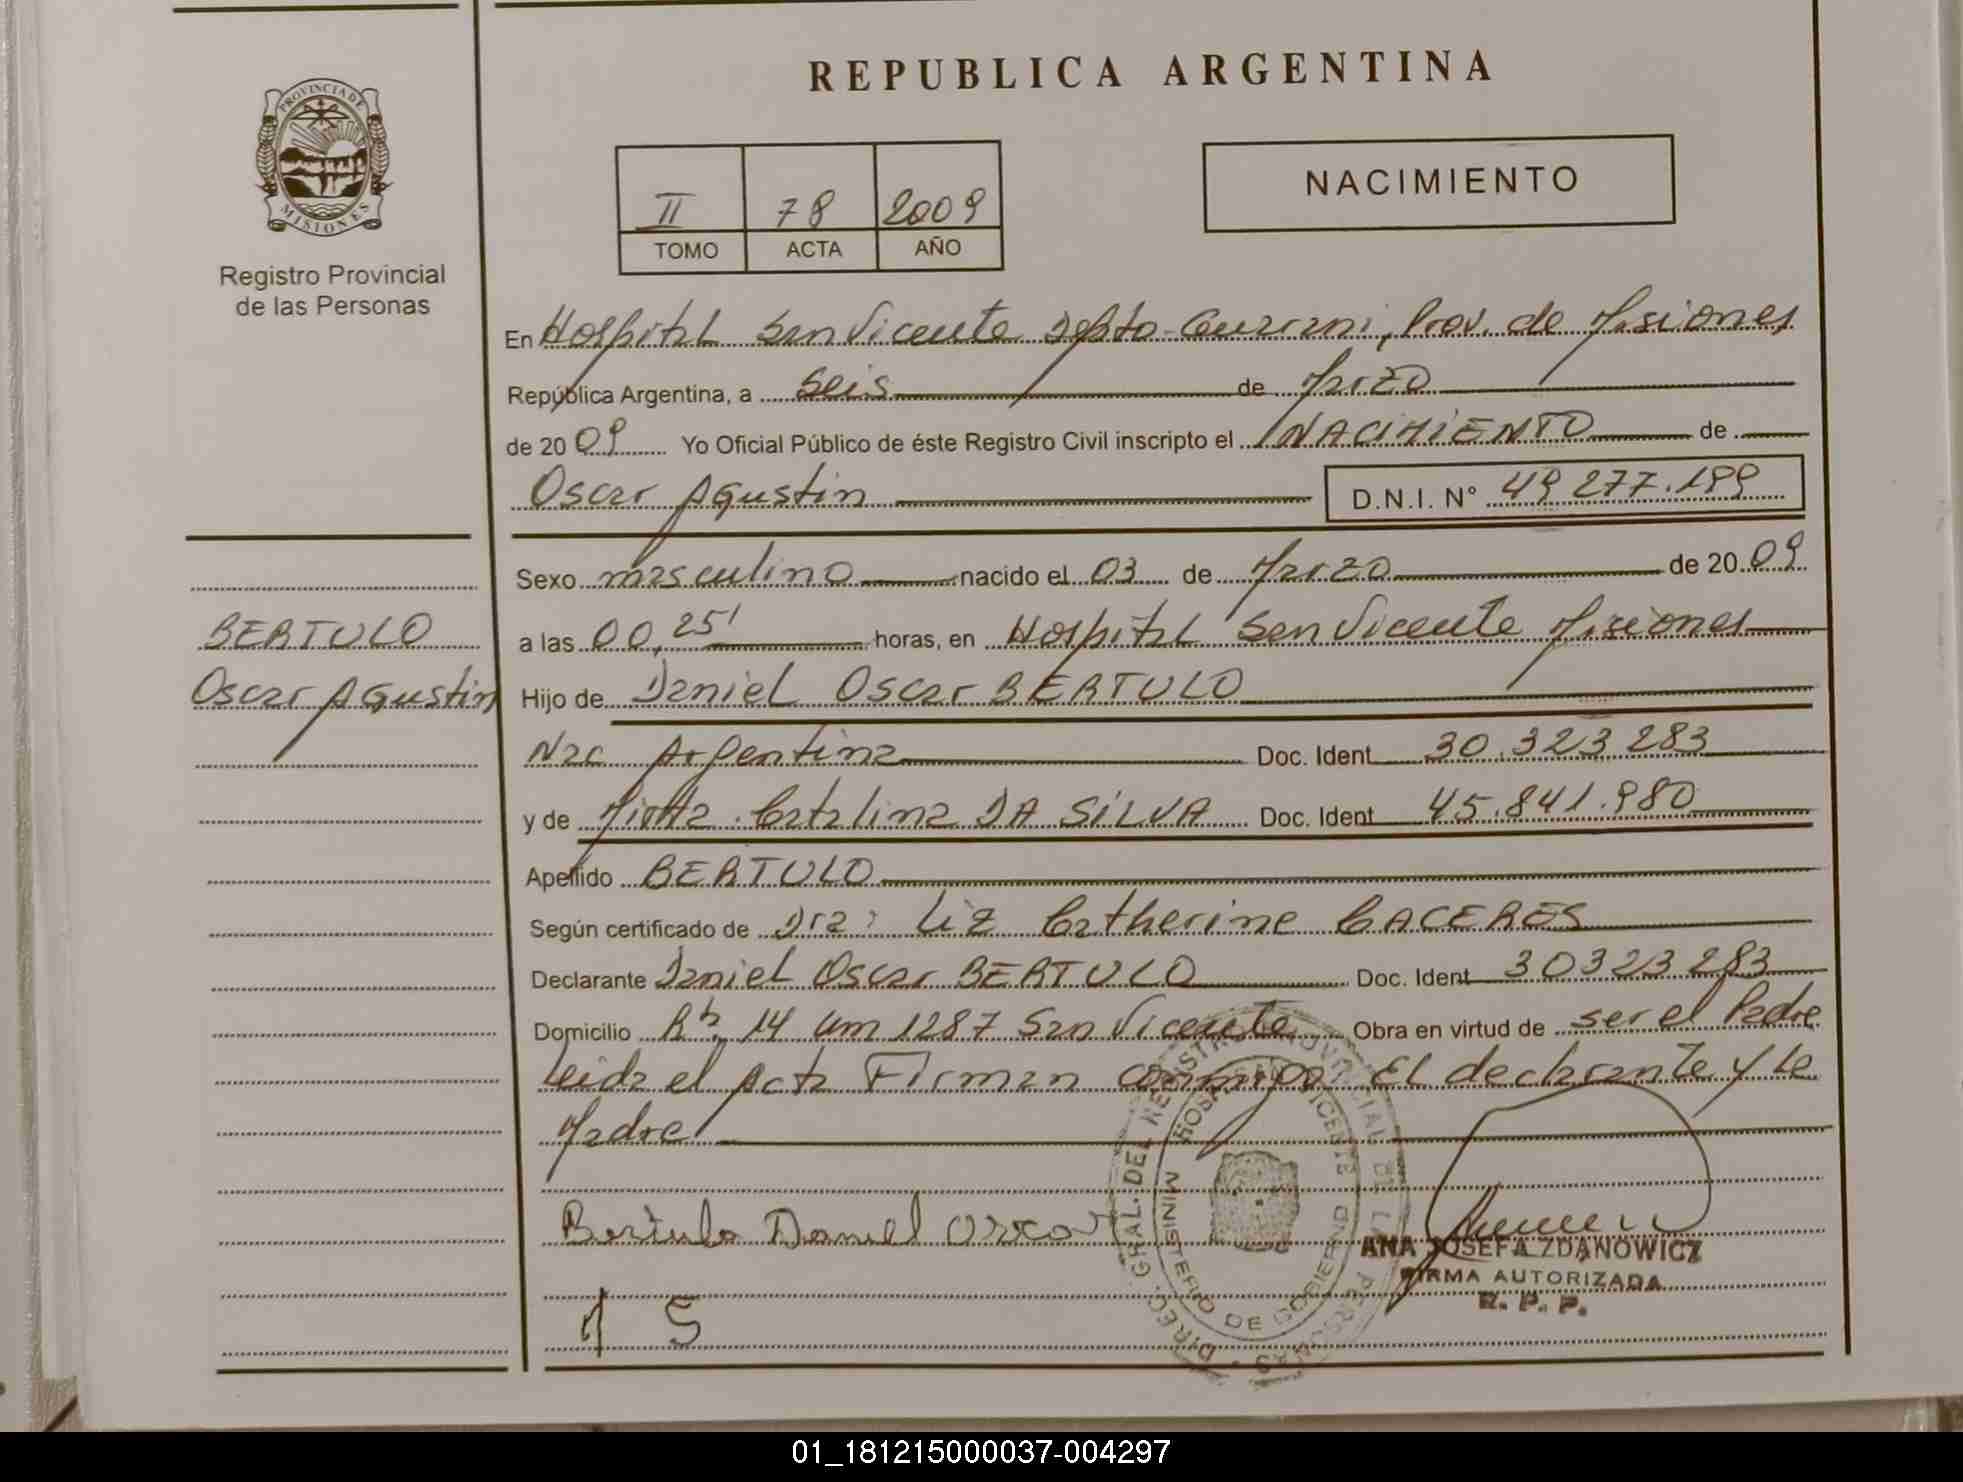 REPUBLICA ARGENTINA
PROVINCIA DE
MISIONES
Registro Provincial
de las Personas
II 78 2009
TOMO ACTA AÑO
NACIMIENTO
En Hospital San Vicente Depto Guarani, Prov. de Misiones
República Argentina, a seis de Marzo
de 2009 Yo Oficial Público de éste Registro Civil inscripto el NACIMIENTO de
Oscar Agustin D.N.I. N° 49 277.199
Sexo masculino nacido el 03 de Marzo de 2009
a las 00,25' horas, en Hospital San Vicente Misiones
Hijo de Daniel Oscar BERTULO
Nac Argentina Doc. Ident 30.323 283
y de Catalina DA SILVA Doc. Ident 45.841.980
Apellido BERTULO
Según certificado de Dra: Liz Catherine CACERES
Declarante Daniel Oscar BERTULO Doc. Ident 30323 283
Domicilio 14 1287 San Vicente Obra en virtud de ser el Padre
Leida el Acta Firman conmigo El declarante y la
Madre
BERTULO
Oscar Agustin
Bertulo Daniel Oscar
DIREC. GRAL. DEL REGISTRO PROVINCIAL DE LAS PERSONAS
HOSP. SAN VICENTE
MINISTERIO DE GOBIERNO
ANA JOSEFA ZDANOWICZ
FIRMA AUTORIZADA
R. P. P.
01_181215000037-004297